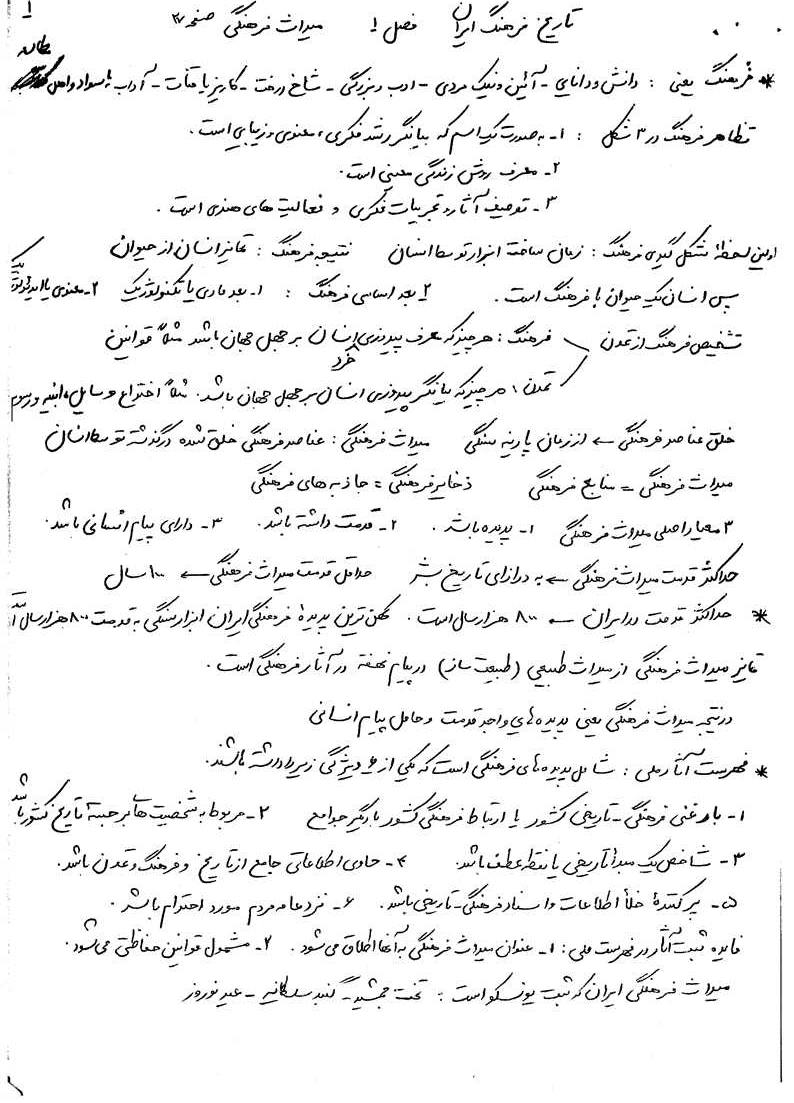 ۱
تاریخ فرهنگ ایران فصل ۱ میراث فرهنگی صفحه ۳۷
* فرهنگ یعنی : دانش و دانایی - آئین و نیک مردی - ادب و بزرگی - شاخ درخت - کاریز یا قنات - آداب با سواد و اهل مطالعه
تظاهر فرهنگ در ۳ شکل : ۱- به صورت یک اسم که بیانگر رشد فکری ، معنوی و زیبایی است .
۲- معرف روش زندگی معینی است .
۳- توصیف آثار و تجربیات فکری و فعالیت های هنری است .
اولین لحظهٔ شکل گیری فرهنگ : زمان ساخت ابزار توسط انسان نتیجه فرهنگ : تمایز انسان از حیوان
پس انسان یک حیوان با فرهنگ است . ۲ بعد اساسی فرهنگ : ۱- بعد مادی یا تکنولوژیک ۲- معنوی یا ایدئولوژیک
تشخیص فرهنگ از تمدن فرهنگ : هر چیز که معرف پیروزی انسان بر جهل جهان باشد مثلاً قوانین
تمدن : هر چیز که بیانگر پیروزی خرد انسان بر جهل جهان باشد . مثلاً اختراع وسایل ، ابنیه و رسوم
خلق عناصر فرهنگی ← از زمان پارینه سنگی میراث فرهنگی : عناصر فرهنگی خلق شده در گذشته توسط انسان
میراث فرهنگی = منابع فرهنگی ذخایر فرهنگی = جاذبه های فرهنگی
۳ معیار اصلی میراث فرهنگی ۱- پدیده باشد . ۲- قدمت داشته باشد . ۳- دارای پیام انسانی باشد .
حداکثر قدمت میراث فرهنگی ← به درازای تاریخ بشر حداقل قدمت میراث فرهنگی ← ۱۰۰ سال
* حداکثر قدمت در ایران ← ۸۰۰ هزار سال است . کهن ترین پدیدهٔ فرهنگی ایران ابزار سنگی به قدمت ۸۰۰ هزار سال است
تمایز میراث فرهنگی از میراث طبیعی (طبیعت ساز) در پیام نهفته در آثار فرهنگی است .
در نتیجه میراث فرهنگی یعنی پدیده های واجد قدمت و حامل پیام انسانی
* فهرست آثار ملی : شامل پدیده های فرهنگی است که یکی از ۶ ویژگی زیر را داشته باشند .
۱- بار غنی فرهنگی - تاریخی کشور یا ارتباط فرهنگی کشور با دیگر جوامع ۲- مربوط به شخصیت ها بر جستهٔ تاریخ کشور باشد
۳- شاخص یک مبدأ تاریخی یا نقطه عطف باشد . ۴- حاوی اطلاعاتی جامع از تاریخ و فرهنگ و تمدن باشد .
۵- پر کنندهٔ خلأ اطلاعات و اسناد فرهنگی - تاریخی باشد . ۶- نزد عامه مردم مورد احترام باشد .
فایده ثبت آثار در فهرست ملی : ۱- عنوان میراث فرهنگی به آنها اطلاق می شود . ۲- مشمول قوانین حفاظتی می شود .
میراث فرهنگی ایران که ثبت یونسکو است : تخت جمشید - گنبد سلطانیه - عید نوروز